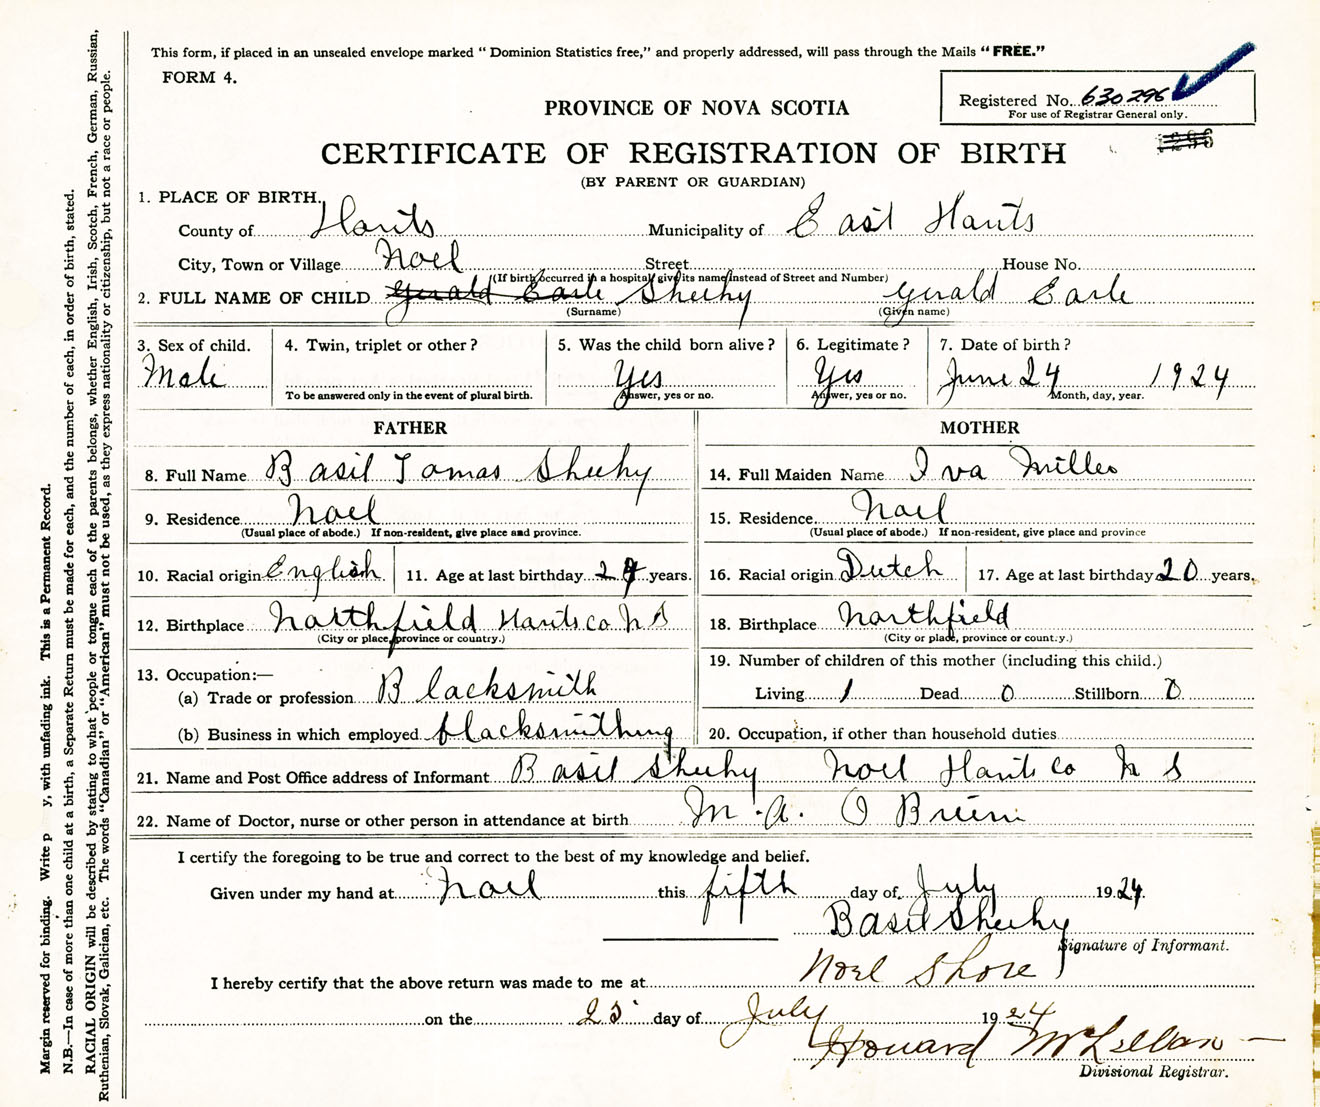 This form, if placed in an unsealed envelope marked “ Dominion Statistics free,” and properly addressed, will pass through the Mails “ FREE.”
FORM 4.
Registered No. 630296
For use of Registrar General only.
PROVINCE OF NOVA SCOTIA
CERTIFICATE OF REGISTRATION OF BIRTH
(BY PARENT OR GUARDIAN)
1. PLACE OF BIRTH.
County of Hants Municipality of East Hants
City, Town or Village Noel Street House No.
(If birth occurred in a hospital give its name instead of Street and Number)
2. FULL NAME OF CHILD Gerald Earle Sheehy Gerald Earle
(Surname) (Given name)
3. Sex of child. 4. Twin, triplet or other ? 5. Was the child born alive ? 6. Legitimate ? 7. Date of birth ?
Male Yes Yes June 24 1924
To be answered only in the event of plural birth. Answer, yes or no. Answer, yes or no. Month, day, year.
FATHER MOTHER
8. Full Name Basil Tomas Sheehy 14. Full Maiden Name Iva Miller
9. Residence Noel 15. Residence Noel
(Usual place of abode.) If non-resident, give place and province. (Usual place of abode.) If non-resident, give place and province
10. Racial origin English 11. Age at last birthday years. 16. Racial origin Dutch 17. Age at last birthday 20 years.
12. Birthplace Northfield Hants co N S 18. Birthplace Northfield
(City or place, province or country.) (City or place, province or country.)
13. Occupation:— 19. Number of children of this mother (including this child.)
(a) Trade or profession Blacksmith Living 1 Dead 0 Stillborn 0
(b) Business in which employed blacksmithing 20. Occupation, if other than household duties
21. Name and Post Office address of Informant Basil Sheehy Noel Hants co N S
22. Name of Doctor, nurse or other person in attendance at birth M. A. O Brien
I certify the foregoing to be true and correct to the best of my knowledge and belief.
Given under my hand at Noel this fifth day of July 1924.
Basil Sheehy
Signature of Informant.
I hereby certify that the above return was made to me at Noel Shore
on the 25 day of July 1924
Howard McLellan
Divisional Registrar.
Margin reserved for binding. Write p y, with unfading ink. This is a Permanent Record.
N.B.—In case of more than one child at a birth, a Separate Return must be made for each, and the number of each, in order of birth, stated.
RACIAL ORIGIN will be described by stating to what people or tongue each of the parents belongs, whether English, Irish, Scotch, French, German, Russian,
Ruthenian, Slovak, Galician, etc. The words “Canadian” or “American” must not be used, as they express nationality or citizenship, but not a race or people.